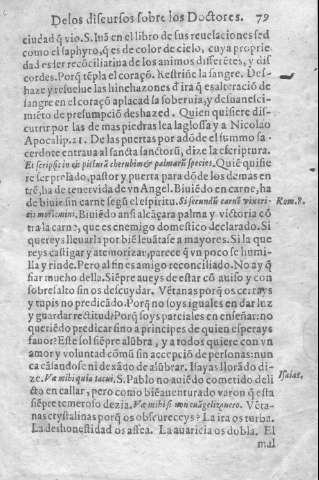 De los discursos sobre los Doctores. 79
ciudad q̃ vio. S. Iuã en el libro de sus reuelaciones sed
como el saphyro, q̃ es de color de cielo, cuya proprie
dad es ser recõciliatina de los animos differẽtes, y dis
cordes. Porq̃ tẽpla el coraçõ. Restriñe la sangre. Des-
haze y resuelue las hinchazones d'ira q̃ es alteraciõ de
sangre en el coraçõ aplacad la soberuia, y desuanesci-
miẽto de presumpciõ deshazed. Quien quisiere dis-
currir por las de mas piedras lea la glossa y a Nicolao
Apocalip. 21. De las puertas por adõde el summo sa-
cerdote entraua al sancta sanctorũ, dize la escriptura.
Et scripsit in eis picturã cherubim & palmarũ species. Quiẽ quisie
re ser prelado, pastor y puerta para dõde los demas en
trẽ, ha de tener vida de vn Angel. Biuiẽdo en carne, ha
de biuir sin carne segũ el espiritu. Si secundũ carnẽ vixeri-
tis moriemini. Biuiẽdo ansi alcãçara palma y victoria cõ
tra la carne, que es enemigo domestico declarado. Si
quereys lleuarla por biẽ leuãtase a mayores. Si la que
reys castigar y atemorizar, parece q̃ vn poco se humi-
lla y rinde. Pero al fin es amigo reconciliado. No ay q̃
fiar mucho della. Siẽpre aueys de estar cõ auiso y con
sobresalto sin os descuydar. Vẽtanas porq̃ os cerrays
y tupis no predicãdo. Porq̃ no soys iguales en dar luz
y guardar rectitud? Porq̃ soys parciales en enseñar: no
queriẽdo predicar sino a principes de quien esperays
fauor? Este sol siẽpre alũbra, y a todos quiere con vn
amor y voluntad comũ sin accepciõ de personas: nun
ca cãsandose ni dexãdo de alũbrar. Isayas llorãdo di-
ze. Væ mihi quia tacui, S. Pablo no auiẽdo cometido deli
cto en callar, pero como biẽauenturado varon q̃ esta
siẽpre temeroso dezia. Væ mihi si non euãgelizauero. Vẽta-
nas crystalinas porq̃ os obscureceys? La ira os turba.
La deshonestidad os affea. La auaricia os dobla. El
mal
Rom. 8.
Isaias.